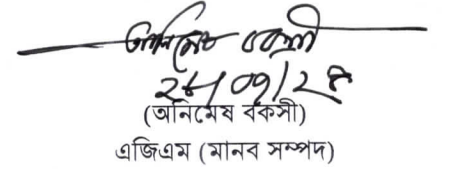 অনিমেষ বকসী
(অনিমেষ বকসী)
এজিএম (মানব সম্পদ)